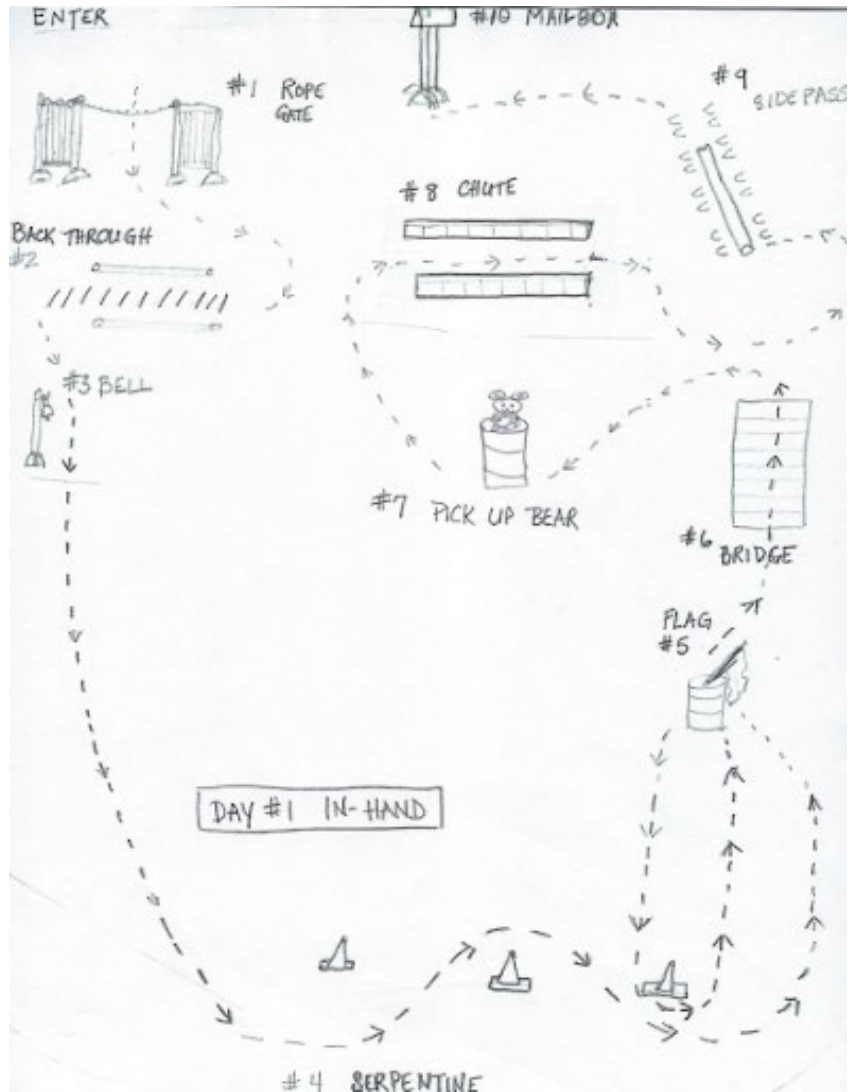 ENTER
#10 MAILBOX
#1 ROPE
GATE
#9
SIDEPASS
#8 CHUTE
BACK THROUGH
#2
#3 BELL
#7 PICK UP BEAR
#6
BRIDGE
FLAG
#5
DAY #1 IN-HAND
#4 SERPENTINE